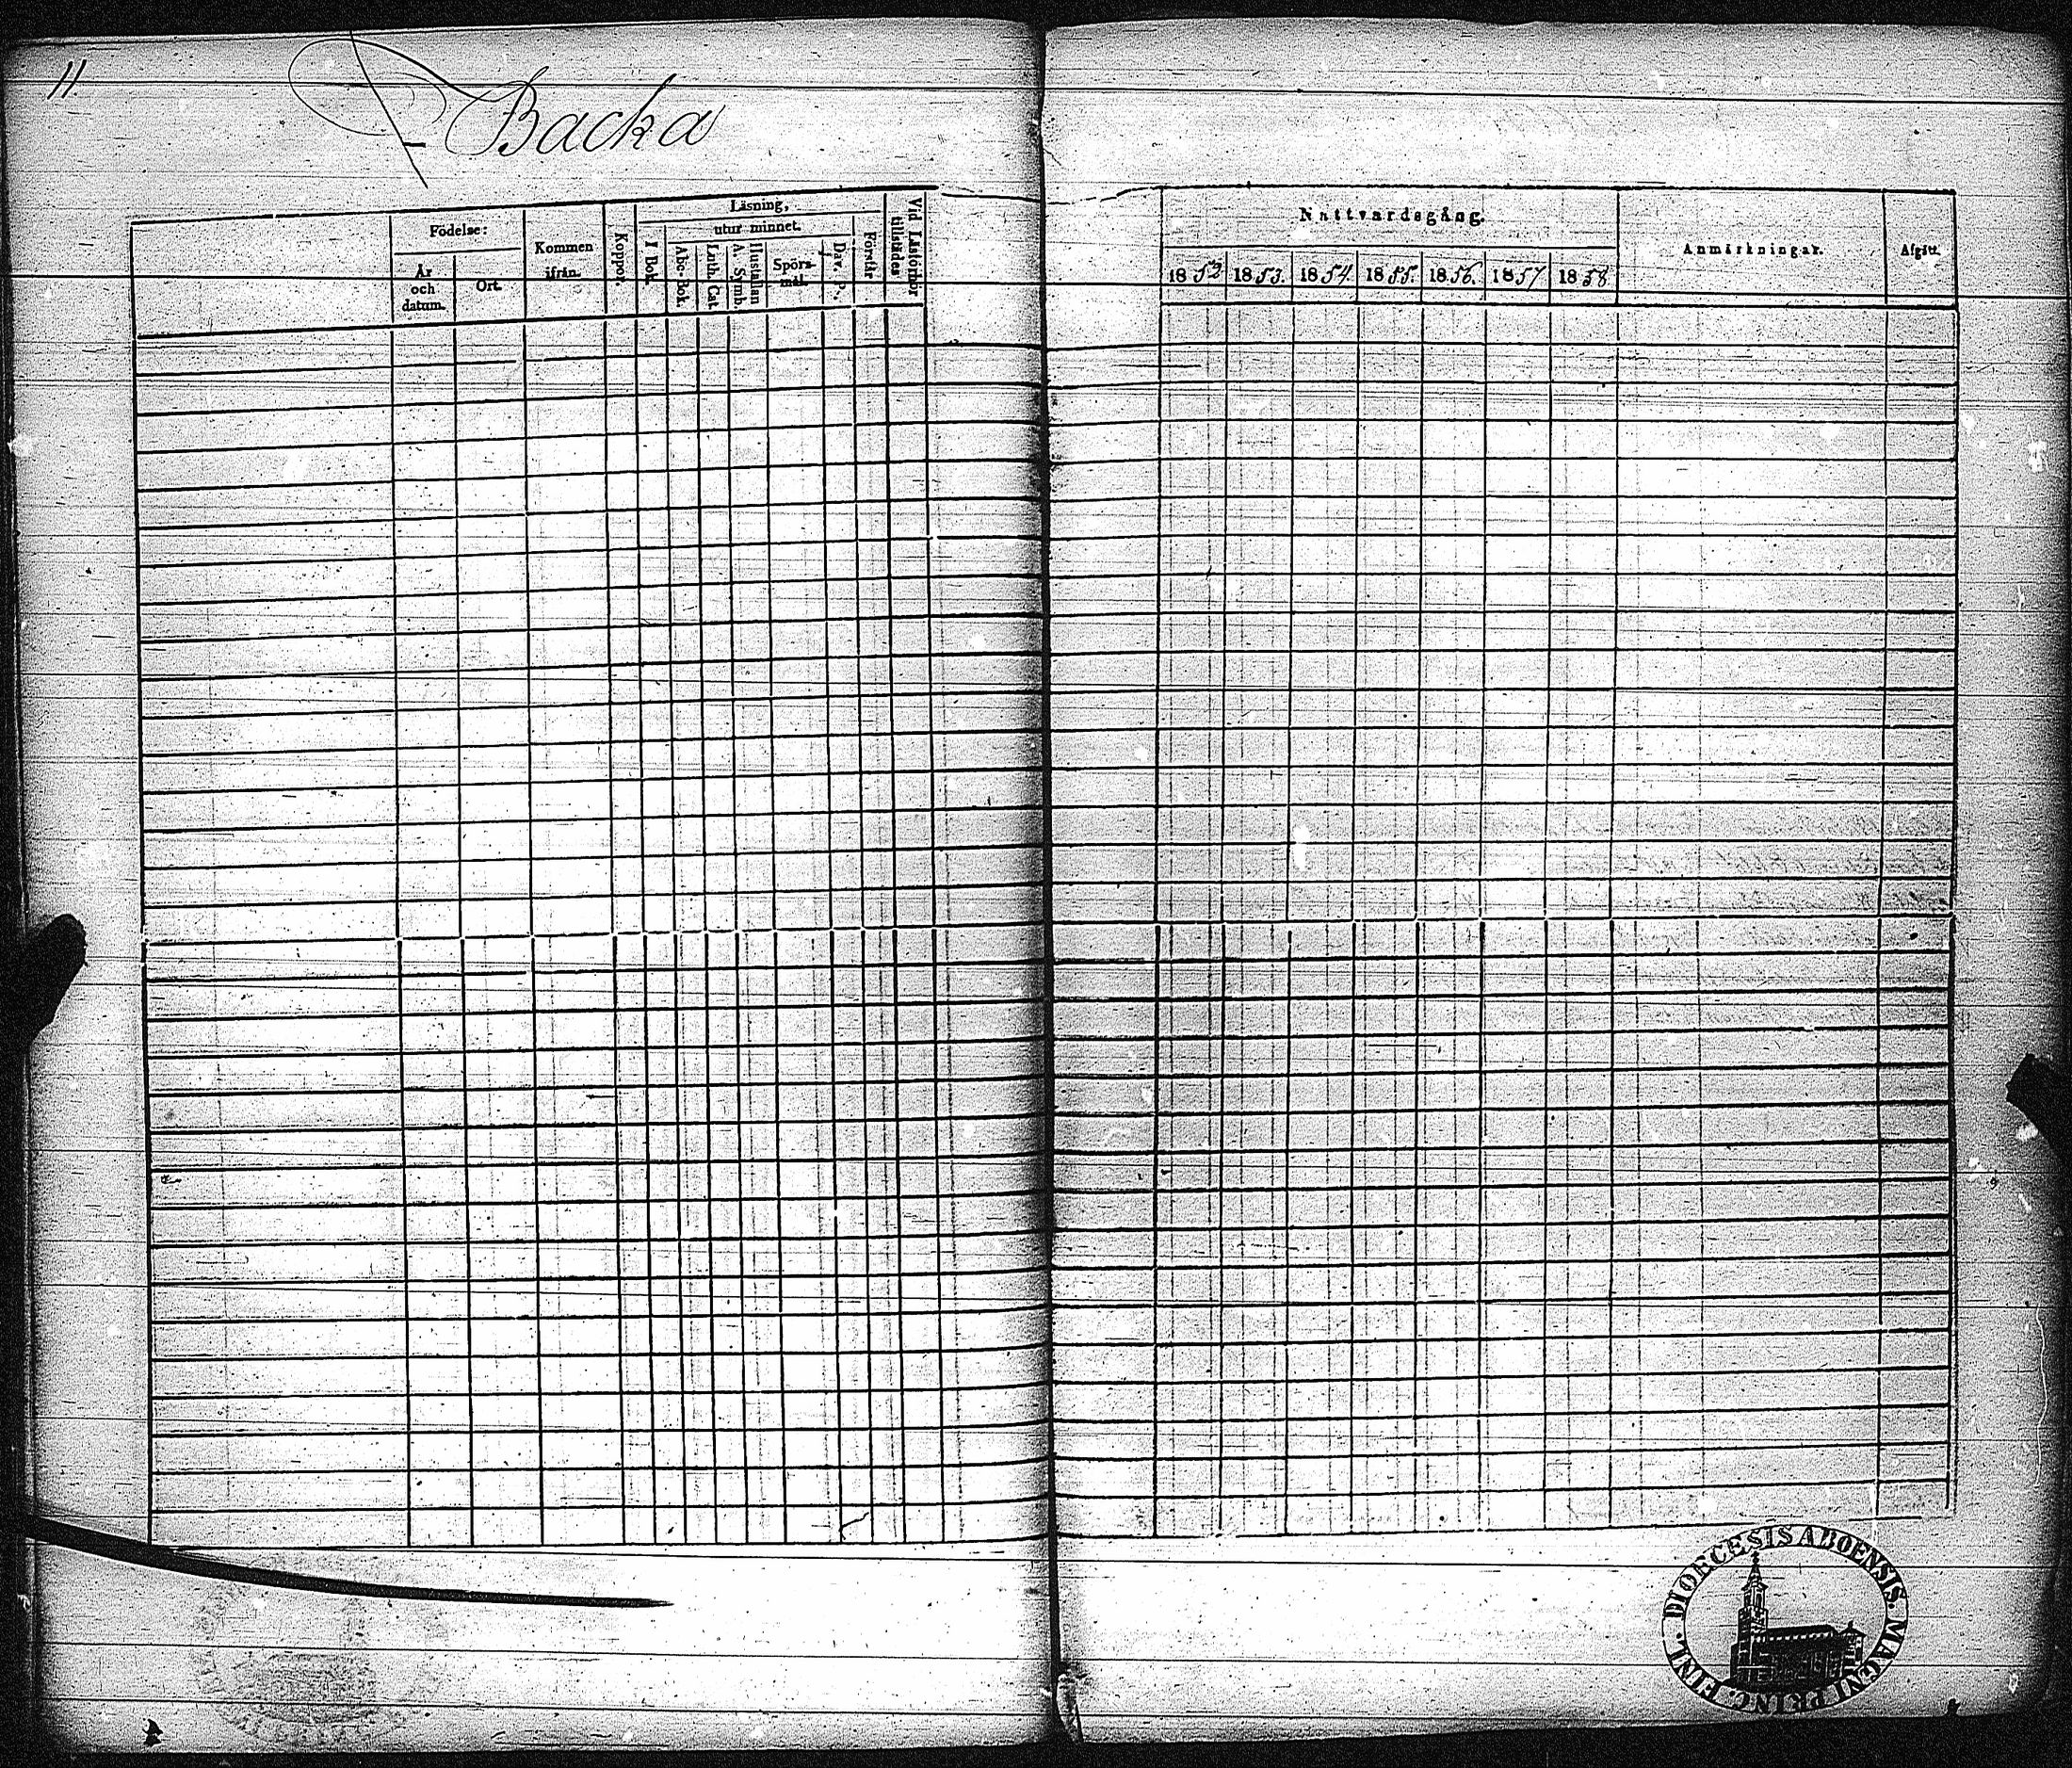 11
Backa
Födelse:
År
och
datum.
Ort.
Kommen
ifrån.
Koppor.
Läsning,
utur minnet.
I Bok.
Abc-Bok.
Luth. Cat.
A. Symb.
Hustaflan
Spörs-
mål.
Dav. P.,
Förstår
Vid Läsförhör
tillstädes
Nattvardsgång.
1852 1853. 1854. 1855. 1856. 1857 1858
Anmärkningar.
Afgått.
FINL. DIOECESIS ABOENSIS. MAGNI PRINC.